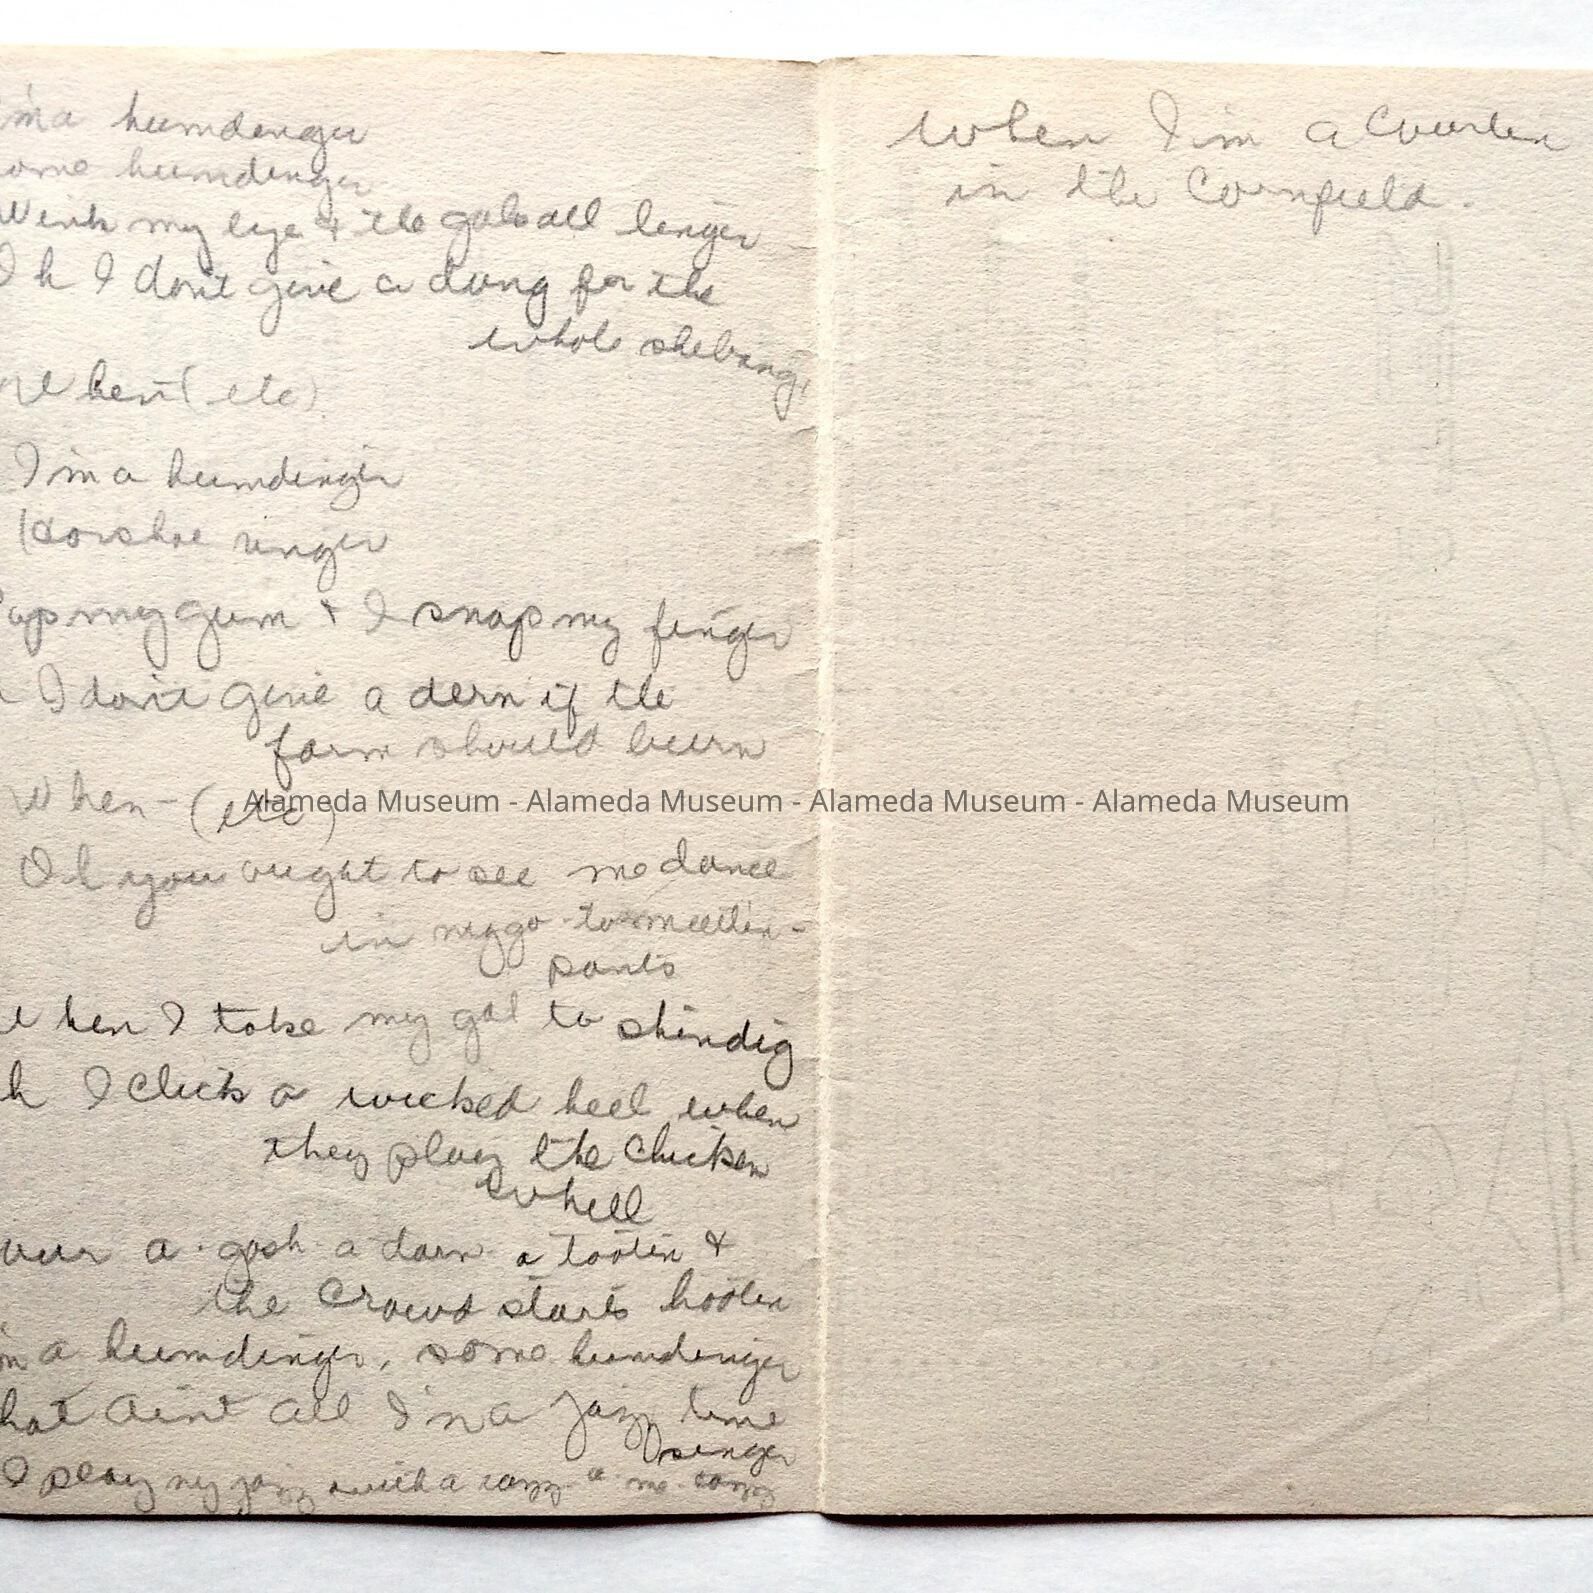 I'm a humdinger
some humdinger
Wink my eye & the gals all linger
Oh I don't give a dang for the
whole shebang,
When (etc)
I'm a humdinger
Horshoe ringer
Pap my gum & I snap my finger
I don't give a dern if the
farm should burn
When - (etc)
Alameda Museum - Alameda Museum - Alameda Museum - Alameda Museum
Oh you ought to see me dance
in my go-to-meetin-
pants
When I take my gal to shindig
Oh I click a wicked heel when
they play the chicken
whell
a - gosh - a darn - a tootin &
the crowd starts hootin
I'm a humdinger, some humdinger
That aint all I'm a jazz time
singer
I play my jazz with a razz - a - ma - tazz
when I'm a Courten
in the Cornfield.